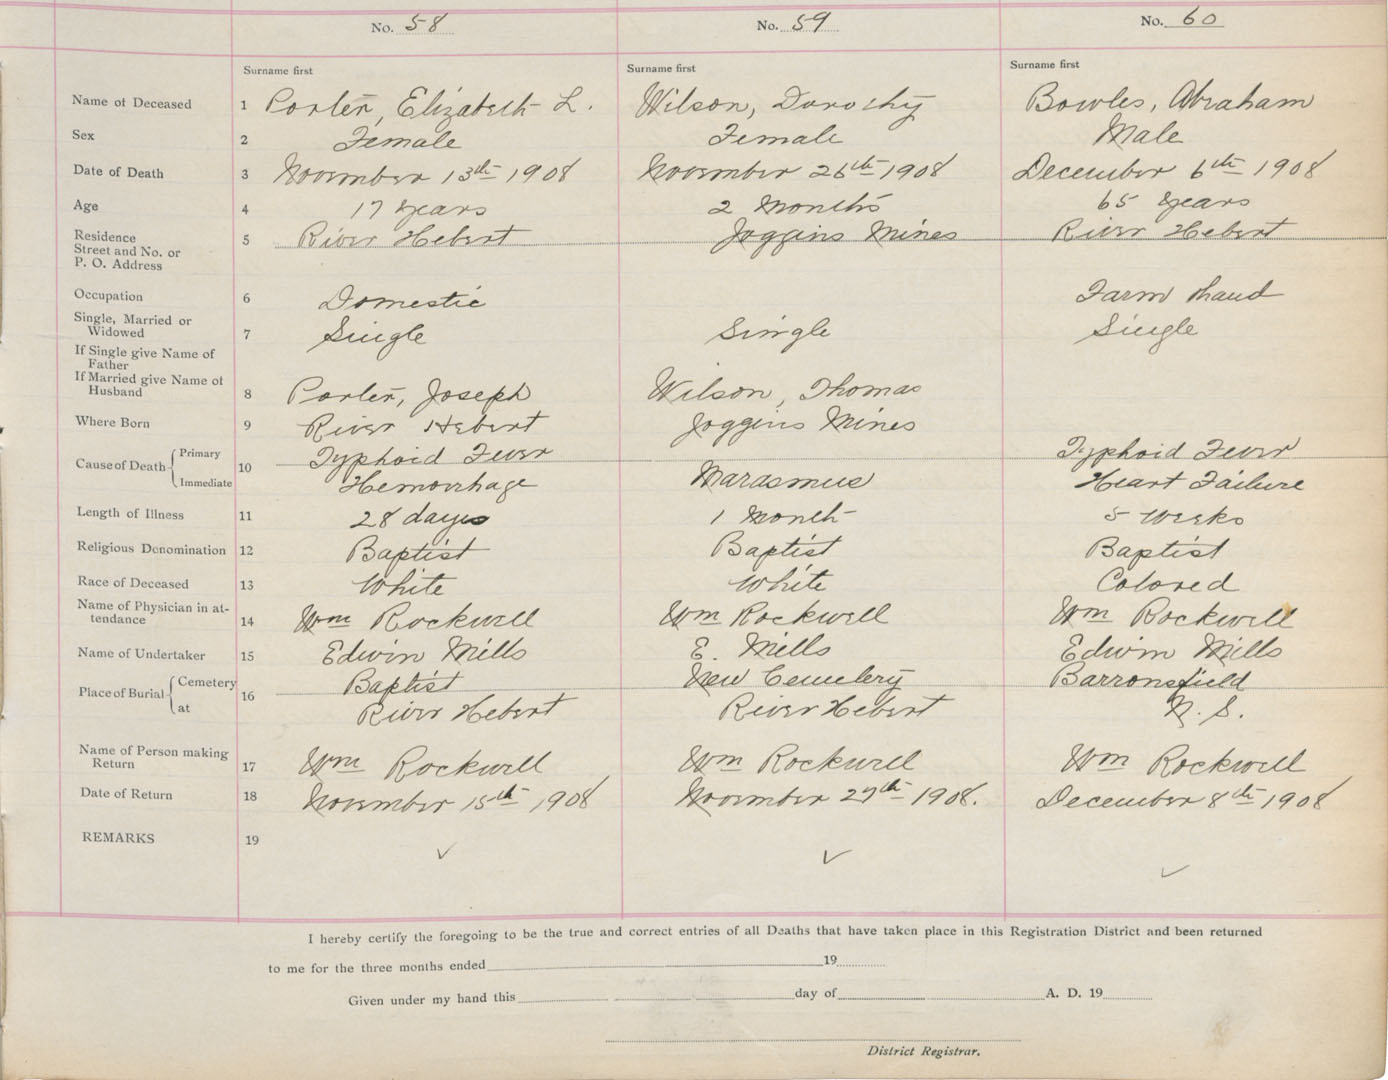 No. 58 No. 59 No. 60
Surname first Surname first Surname first
Name of Deceased 1 Porter, Elizabeth L. Wilson, Dorothy Bowles, Abraham
Sex 2 Female Female Male
Date of Death 3 November 13th 1908 November 26th 1908 December 6th 1908
Age 4 17 years 2 Months 65 years
Residence
Street and No. or 5 River Hebert Joggins Mines River Hebert
P. O. Address
Occupation 6 Domestic Farm hand
Single, Married or
Widowed 7 Single Single Single
If Single give Name of
Father
If Married give Name of
Husband 8 Porter, Joseph Wilson, Thomas
Where Born 9 River Hebert Joggins Mines
Cause of Death Primary 10 Typhoid Fever Typhoid Fever
Immediate Hemorrhage Marasmus Heart Failure
Length of Illness 11 28 days 1 Month 5 weeks
Religious Denomination 12 Baptist Baptist Baptist
Race of Deceased 13 White White Colored
Name of Physician in at-
tendance 14 Wm Rockwell Wm Rockwell Wm Rockwell
Name of Undertaker 15 Edwin Mills E. Mills Edwin Mills
Place of Burial Cemetery 16 Baptist New Cemetery Barronsfield
at River Hebert River Hebert N. S.
Name of Person making
Return 17 Wm Rockwell Wm Rockwell Wm Rockwell
Date of Return 18 November 15th 1908 November 27th 1908. December 8th 1908
REMARKS 19
I hereby certify the foregoing to be the true and correct entries of all Deaths that have taken place in this Registration District and been returned
to me for the three months ended 19
Given under my hand this day of A. D. 19
District Registrar.